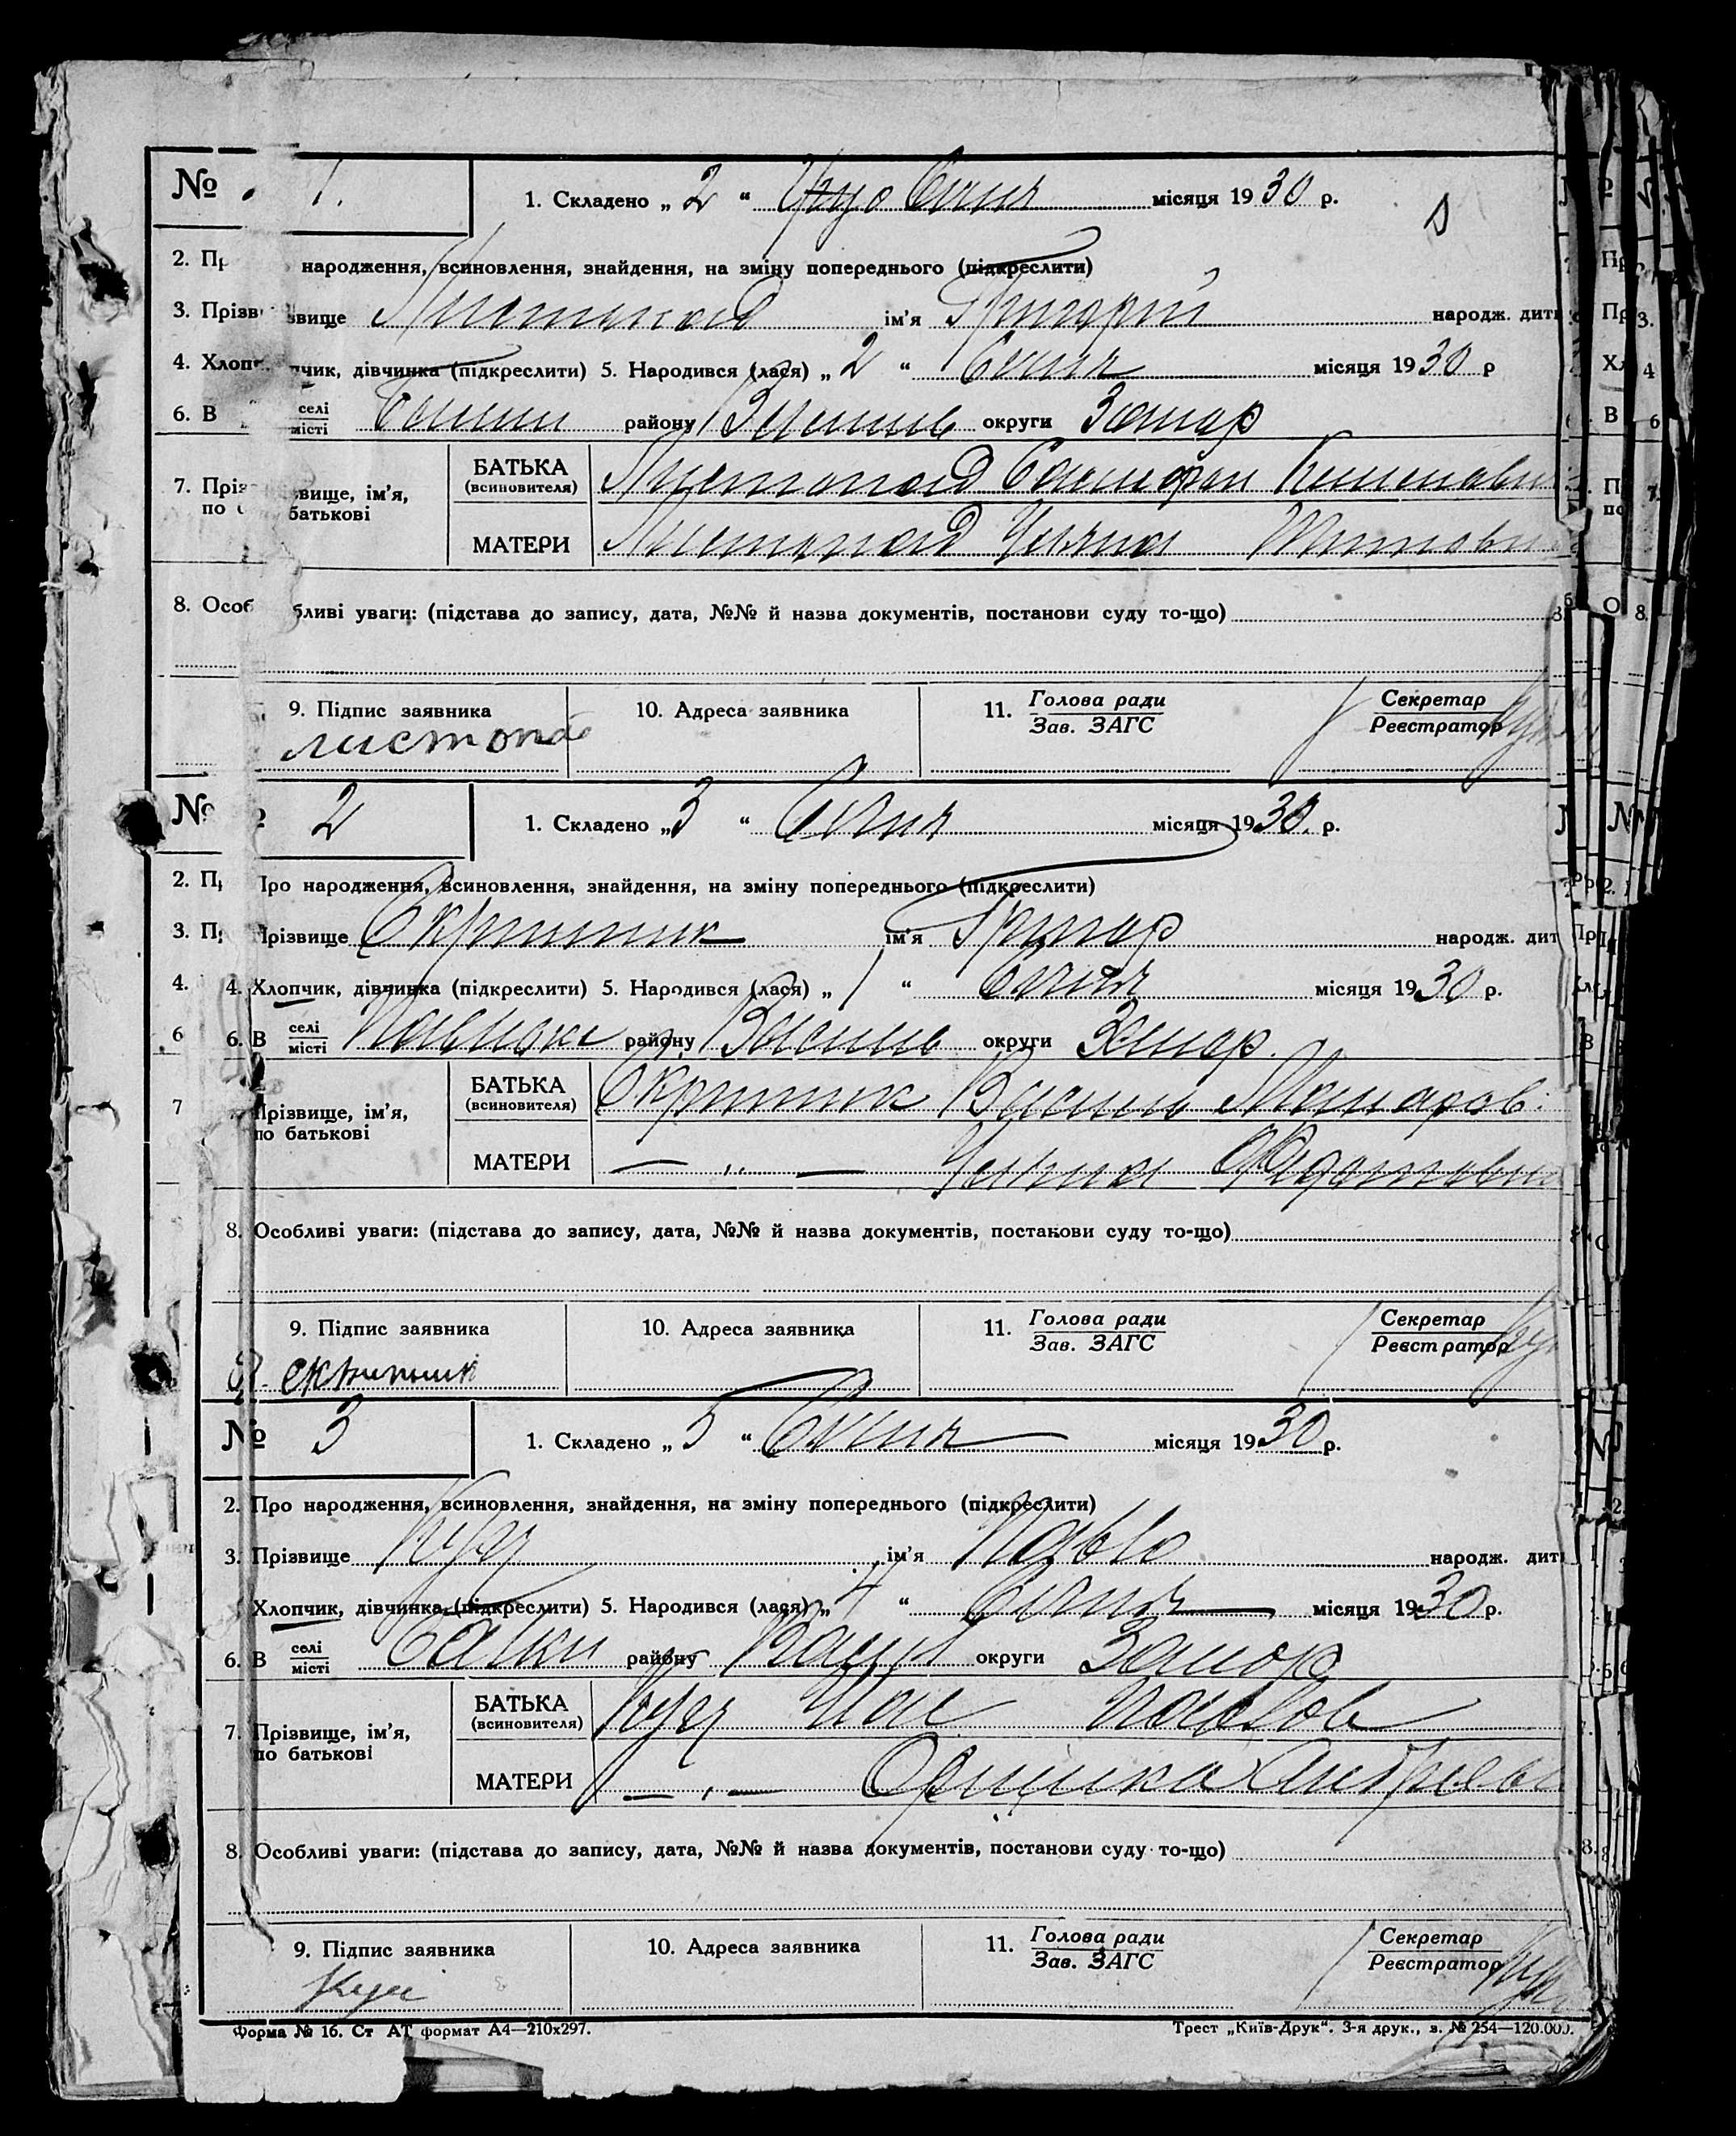 № 1.
1. Складено „ 2 “ Січня місяця 1930 р.
2. Пр народження, всиновлення, знайдення, на зміну попереднього (підкреслити)
3. Прізвище Листопад ім’я Григорій народж. дит
4. Хлопчик, дівчинка (підкреслити) 5. Народився (лася) „ 2 “ Січня місяця 1930 р
6. В селі місті Балки району Василів округи Запор
7. Прізвище, ім’я, по батькові
БАТЬКА (всиновителя) Листопад
МАТЕРИ Листопад Уляна
8. Особливі уваги: (підстава до запису, дата, №№ й назва документів, постанови суду то-що)
9. Підпис заявника 10. Адреса заявника 11. Голова ради Зав. ЗАГС Секретар Реєстратор
листопад
№ 2
1. Складено „ 3 “ Січня місяця 1930. р.
2. Про народження, всиновлення, знайдення, на зміну попереднього (підкреслити)
3. Прізвище Скрипник ім’я Григор народж. дит
4. Хлопчик, дівчинка (підкреслити) 5. Народився (лася) „ 1 “ Січня місяця 1930 р.
6. В селі місті району Василів округи Запор.
7 Прізвище, ім’я, по батькові
БАТЬКА (всиновителя) Скрипник Василь Макаров.
МАТЕРИ — „ — Уляна Федотовна
8. Особливі уваги: (підстава до запису, дата, №№ й назва документів, постанови суду то-що)
9. Підпис заявника 10. Адреса заявника 11. Голова ради Зав. ЗАГС Секретар Реєстратор
№ 3
1. Складено „ 5 “ Січня місяця 1930 р.
2. Про народження, всиновлення, знайдення, на зміну попереднього (підкреслити)
3. Прізвище Куц ім’я Павло народж. дит
Хлопчик, дівчинка (підкреслити) 5. Народився (лася) „ 4 “ Січня місяця 1930 р.
6. В селі місті Балки району Васил округи Запор
7. Прізвище, ім’я, по батькові
БАТЬКА (всиновителя) Куц Павлов
МАТЕРИ — „ — Оришка Андріевн
8. Особливі уваги: (підстава до запису, дата, №№ й назва документів, постанови суду то-що)
9. Підпис заявника 10. Адреса заявника 11. Голова ради Зав. ЗАГС Секретар Реєстратор
Форма № 16. Ст АТ формат А4—210х297. Трест „Київ-Друк“. 3-я друк., з. № 254—120.000.